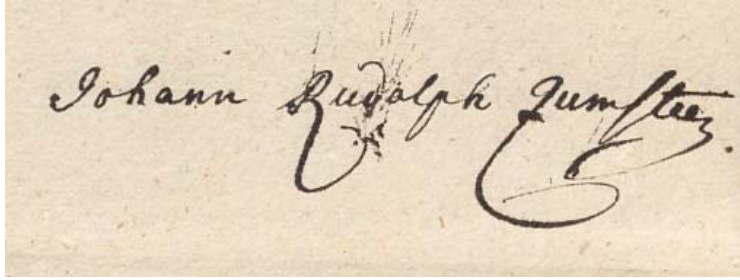 Johann Rudolph Zumsteeg.